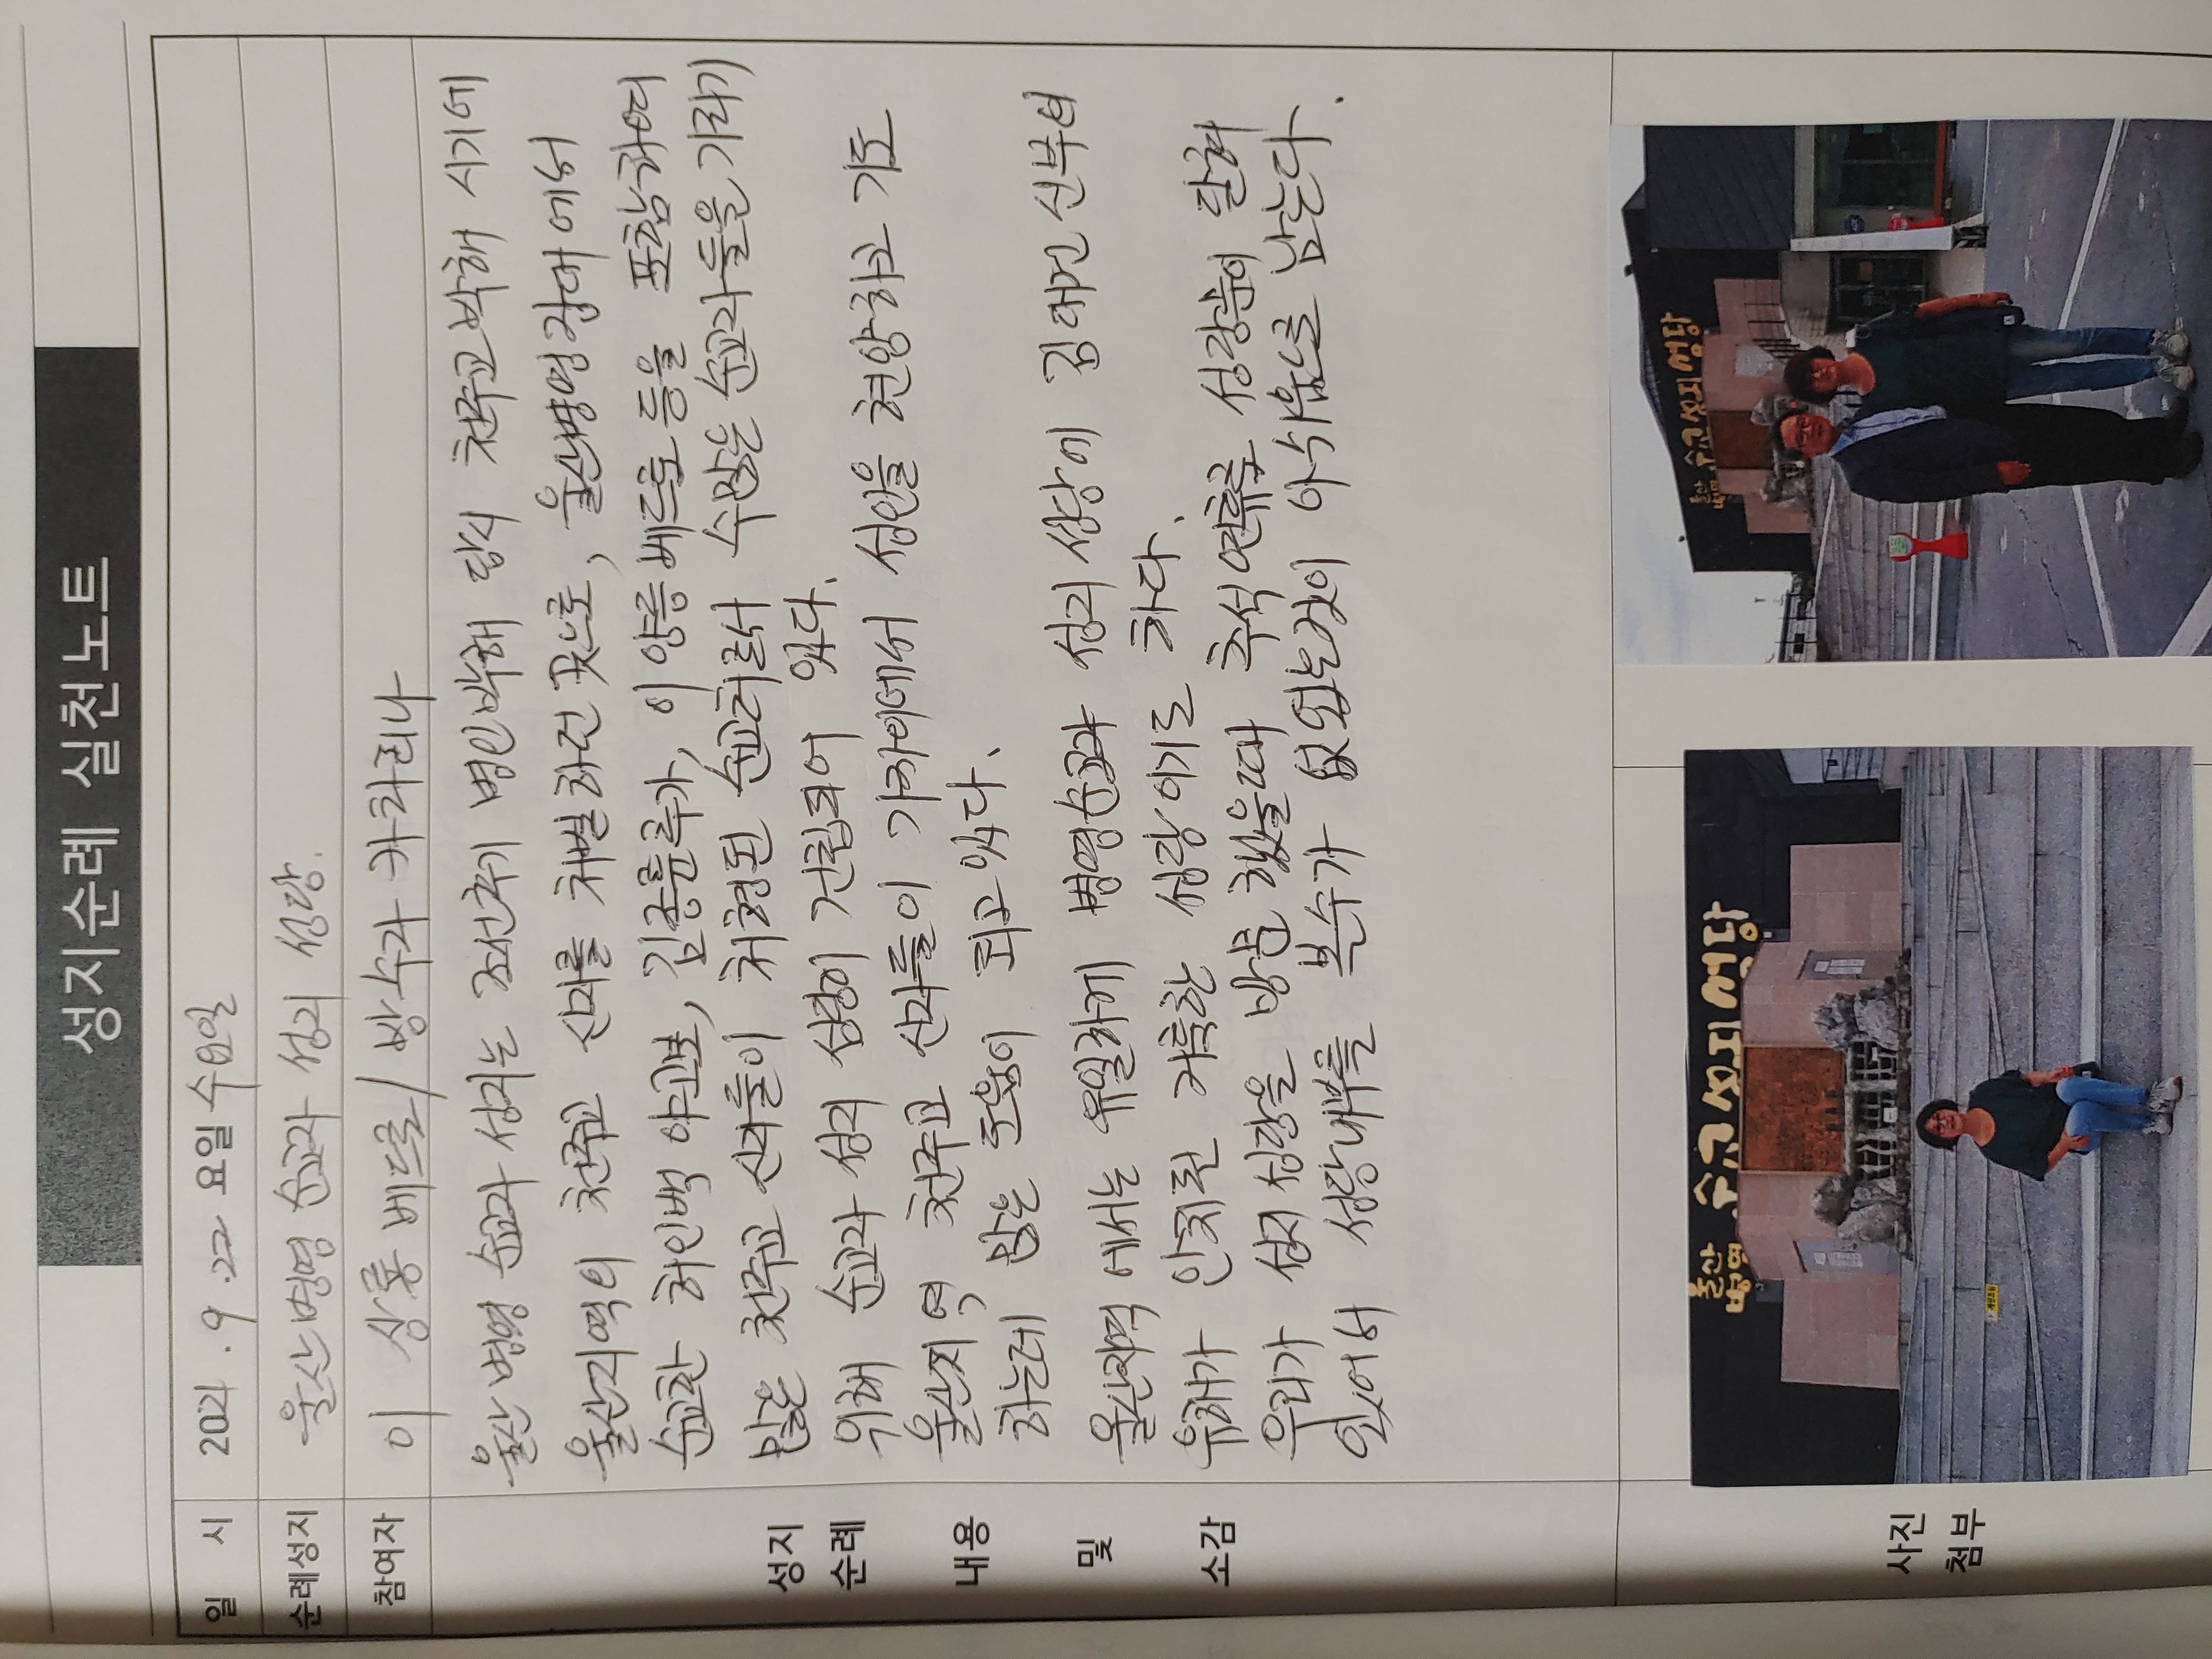 성지순례 실천노트
일 시 2021 . 9 . 22 요일 수요일
순례성지 울산병영 순교자 성지 성당.
참여자 이 상룡 베드로 / 방 수자 카타리나
성지
순례
내용
및
소감
울산 병영 순교자 성지는 조선후기 병인박해 당시 천주교 박해 시기에
울산지역의 천주교 신자를 처벌하던 곳으로, 울산병영장대에서
순교한 허인백 야고보, 김종륜루가, 이양등베드로 등을 포함하여
많은 천주교 신자들이 처형된 순교터로서 수많은 순교자들을 기리기
위해 순교자 성지 성당이 건립되어 있다.
울산지역 천주교 신자들이 가까이에서 성인을 현양하고 기도
하는데 많은 도움이 되고 있다.
울산지역 에서는 유일하게 병영순교자 성지 성당에 김대건 신부님
유해가 안치된 거룩한 성당이기도 하다.
우리가 성지 성당을 방문 했을때 추석연휴로 성당문이 닫혀
있어서 성당내부를 볼수가 없었는것이 아쉬움으로 남는다.
사진
첨부
울산
병영
순교성지성당
울산
병영
순교성지성당